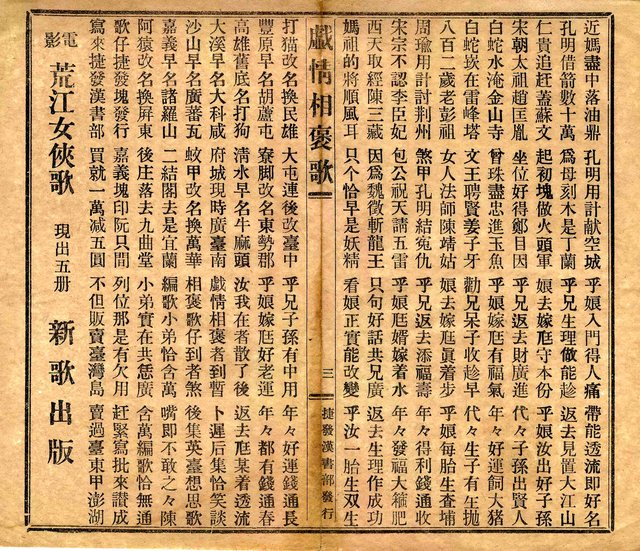 近媽盡中落油鼎 孔明用計献空城 乎娘入門得人痛 帶能透流即好名
孔明借箭數十萬 為母刻木是丁蘭 乎兄生理做能趁 返去見置大江山
仁貴追赶蓋蘇文 起初塊做火頭軍 娘去嫁尫守本份 乎娘汝出好子孫
宋朝太祖趙匡胤 坐位好得鄭目因 乎兄返去財廣進 代々子孫出賢人
白蛇水淹金山寺 曾珠盡忠進玉魚 乎娘嫁尫有福氣 年々好運飼大猪
白蛇崁在雷峰塔 文王聘賢姜子牙 勸兄呆子收趁早 代々生子有年拋
八百二歲老彭祖 女人法師陳靖姑 娘去嫁尫眞着步 乎娘每胎生查埔
周瑜用計討荆州 煞甲孔明結寃仇 乎兄返去添福壽 年々得利錢通收
宋宗不認李臣妃 包公祝天請五雷 乎娘尫婿嫁着水 年々發福大籮肥
西天取經陳三藏 因爲魏徵斬龍王 只句好話共兄廣 返去生理作成功
媽祖的將順風耳 只个恰早是妖精 看娘正實能改變 乎汝一胎生双生
戱情相褒歌
三
捷發漢書部發行
打猫改名換民雄 大屯連後改臺中 乎兄子孫有中用 年々好運錢通長
豐原早名葫蘆屯 寮脚改名東勢郡 乎娘嫁尫好老運 年々都有錢通春
高雄舊底名打狗 淸水早名牛麻頭 汝我在者散了後 返去尫某着透流
大溪早名大科崁 府城現時廣臺南 戱情相褒者到暫 卜遲后集恰笑談
沙山早名廣蕃瓦 蚊甲改名換萬華 相褒歌仔到者煞 後集英臺想思歌
嘉義早名諸羅山 二結閣去是宜蘭 編歌小弟恰含萬 嘴即不敢之々陳
阿猿改名換屏東 後庄落去九曲堂 小弟實在共恁廣 含萬編歌恰無通
歌仔捷發塊發行 嘉義塊印阮只間 列位那是有欠用 赶緊寫批來讃成
寫來捷發漢書部 買就一萬减五圓 不但販賣臺灣島 賣過臺東甲澎湖
電影 荒江女俠歌 現出五册 新歌出版